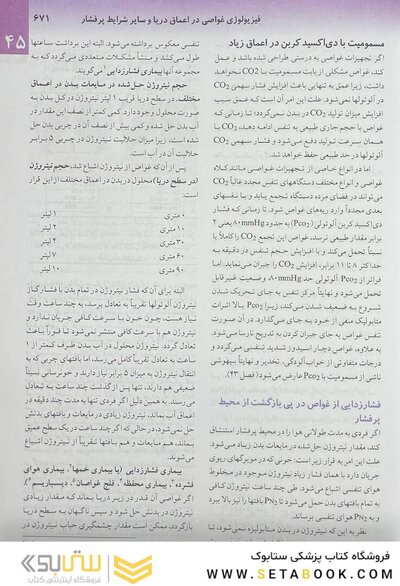 فیزیولوژی غواصی در اعماق دریا و سایر شرایط پرفشار
۶۷۱
۴۵
مسمومیت با دی‌اکسید کربن در اعماق زیاد
اگر تجهیزات غواصی به درستی طراحی شده باشد و عمل
کند، غواص مشکلی از بابت مسمومیت با CO2 نخواهد
داشت، زیرا عمق به تنهایی باعث افزایش فشار سهمی CO2
در آلوئولها نمی‌شود. علت این امر آن است که عمق سبب
افزایش میزان تولید CO2 در بدن نمی‌گردد؛ تا زمانی که
غواص با حجم جاری طبیعی به تنفس ادامه دهد، CO2 با
همان سرعت تولید دفع می‌شود و فشار سهمی CO2
آلوئولها در حد طبیعی حفظ خواهد شد.
اما در انواع خاصی از تجهیزات غواصی مانند کلاه
غواصی و انواع مختلف دستگاههای تنفس مجدد غالباً CO2
می‌تواند در فضای مرده دستگاه تجمع یابد و با تنفسهای
بعدی مجدداً وارد ریه‌های غواص شود. تا زمانی که فشار
دی‌اکسید کربن آلوئولی (Pco2) به حدود ۸۰mmHg یعنی ۲
برابر مقدار طبیعی نرسد، غواص این تجمع CO2 را کاملاً یا
نسبتاً تحمل می‌کند و با افزایش حجم تنفس در دقیقه به
حداکثر ۸ تا ۱۱ برابر، افزایش CO2 را جبران می‌نماید. اما
فراتر از Pco2 آلوئولی حد ۸۰mmHg، وضعیت غیرقابل
تحمل می‌شود و نهایتاً مرکز تنفس به جای تحریک شدن
شروع به ضعیف شدن می‌کند، زیرا Pco2 بالا اثرات
متابولیک منفی از خود به جای می‌گذارد. در آن صورت
تنفس غواص به جای جبران کردن به تدریج نارسا می‌شود.
به علاوه، غواص دچار اسیدوز شدید تنفسی می‌گردد و
درجات متفاوتی از خواب‌آلودگی، تخدیر و نهایتاً بیهوشی
ناشی از مسمومیت با Pco2 عارض می‌شود (فصل ۴۳).
فشارزدایی از غواص در پی بازگشت از محیط
پرفشار
اگر فردی به مدت طولانی هوا را در محیط پرفشار استنشاق
کند، مقدار نیتروژن حل‌شده در مایعات بدن زیاد می‌شود.
علت این امر به قرار زیر است: خونی که در مویرگهای ریوی
جریان دارد با همان فشار زیاد نیتروژن موجود در مخلوط
هوای تنفسی اشباع می‌شود. طی چند ساعت نیتروژن کافی
به تمام بافتهای بدن حمل می‌شود تا PN2 بافتها را نیز بالا ببرد
و به PN2 هوای تنفسی برساند.
نظر به این که نیتروژن در بدن متابولیزه نمی‌شود، تا
تنفسی معکوس برداشته می‌شود. البته این برداشت ساعتها
طول می‌کشد و منشأ مشکلات متعددی می‌گردد که به
مجموعه آنها بیماری فشارزدایی۱ می‌گویند.
حجم نیتروژن حل‌شده در مایعات بدن در اعماق
مختلف. در سطح دریا قریب ۱ لیتر نیتروژن در کل بدن به
صورت محلول وجود دارد. کمی کمتر از نصف این مقدار در
آب بدن حل شده و کمی بیش از نصف آن در چربی بدن حل
شده است، زیرا میزان حلالیت نیتروژن در چربی ۵ برابر
حلالیت آن در آب است.
پس از آن که غواص از نیتروژن اشباع شد، حجم نیتروژن
(در سطح دریا) محلول در بدن در اعماق مختلف از این قرار
است:
۰ متری ۱ لیتر
۱۰ متری ۲ لیتر
۳۰ متری ۴ لیتر
۶۰ متری ۷ لیتر
۹۰ متری ۱۰ لیتر
البته برای آن که فشار نیتروژن در تمام بدن با فشار گاز
نیتروژن آلوئولها تقریباً به تعادل برسد، به چند ساعت وقت
نیاز هست، چون خون با سرعت کافی جریان ندارد و
نیتروژن هم با سرعت کافی منتشر نمی‌شود تا فوراً باعث
تعادل گردد. نیتروژن محلول در آب بدن ظرف کمتر از ۱
ساعت به تعادل تقریباً کامل می‌رسد، اما بافتهای چربی که به
انتقال نیتروژن به میزان ۵ برابر نیاز دارند و خونرسانی نسبتاً
ضعیفی هم دارند، تنها پس از گذشت چند ساعت به تعادل
می‌رسند. به همین دلیل اگر فردی تنها به مدت چند دقیقه در
اعماق آب بماند، نیتروژن زیادی در مایعات و بافتهای بدنش
حل نمی‌شود، در حالی که اگر چند ساعت در یک سطح عمیق
بماند، هم مایعات و هم بافتها تقریباً از نیتروژن اشباع
می‌شوند.
بیماری فشارزدایی (یا بیماری خمها۲، بیماری هوای
فشرده۳، بیماری محفظه۴، فلج غواصان۵، دیسباریسم۶).
اگر غواصی آن قدر در زیر دریا بماند که مقدار زیادی
نیتروژن در بدنش حل شود و سپس ناگهان به سطح دریا
بازگردد، ممکن است مقدار چشمگیری حباب نیتروژن در
ستابوک
فروشگاه اینترنتی کتاب
فروشگاه کتاب پزشکی ستابوک
WWW.SETABOOK.COM